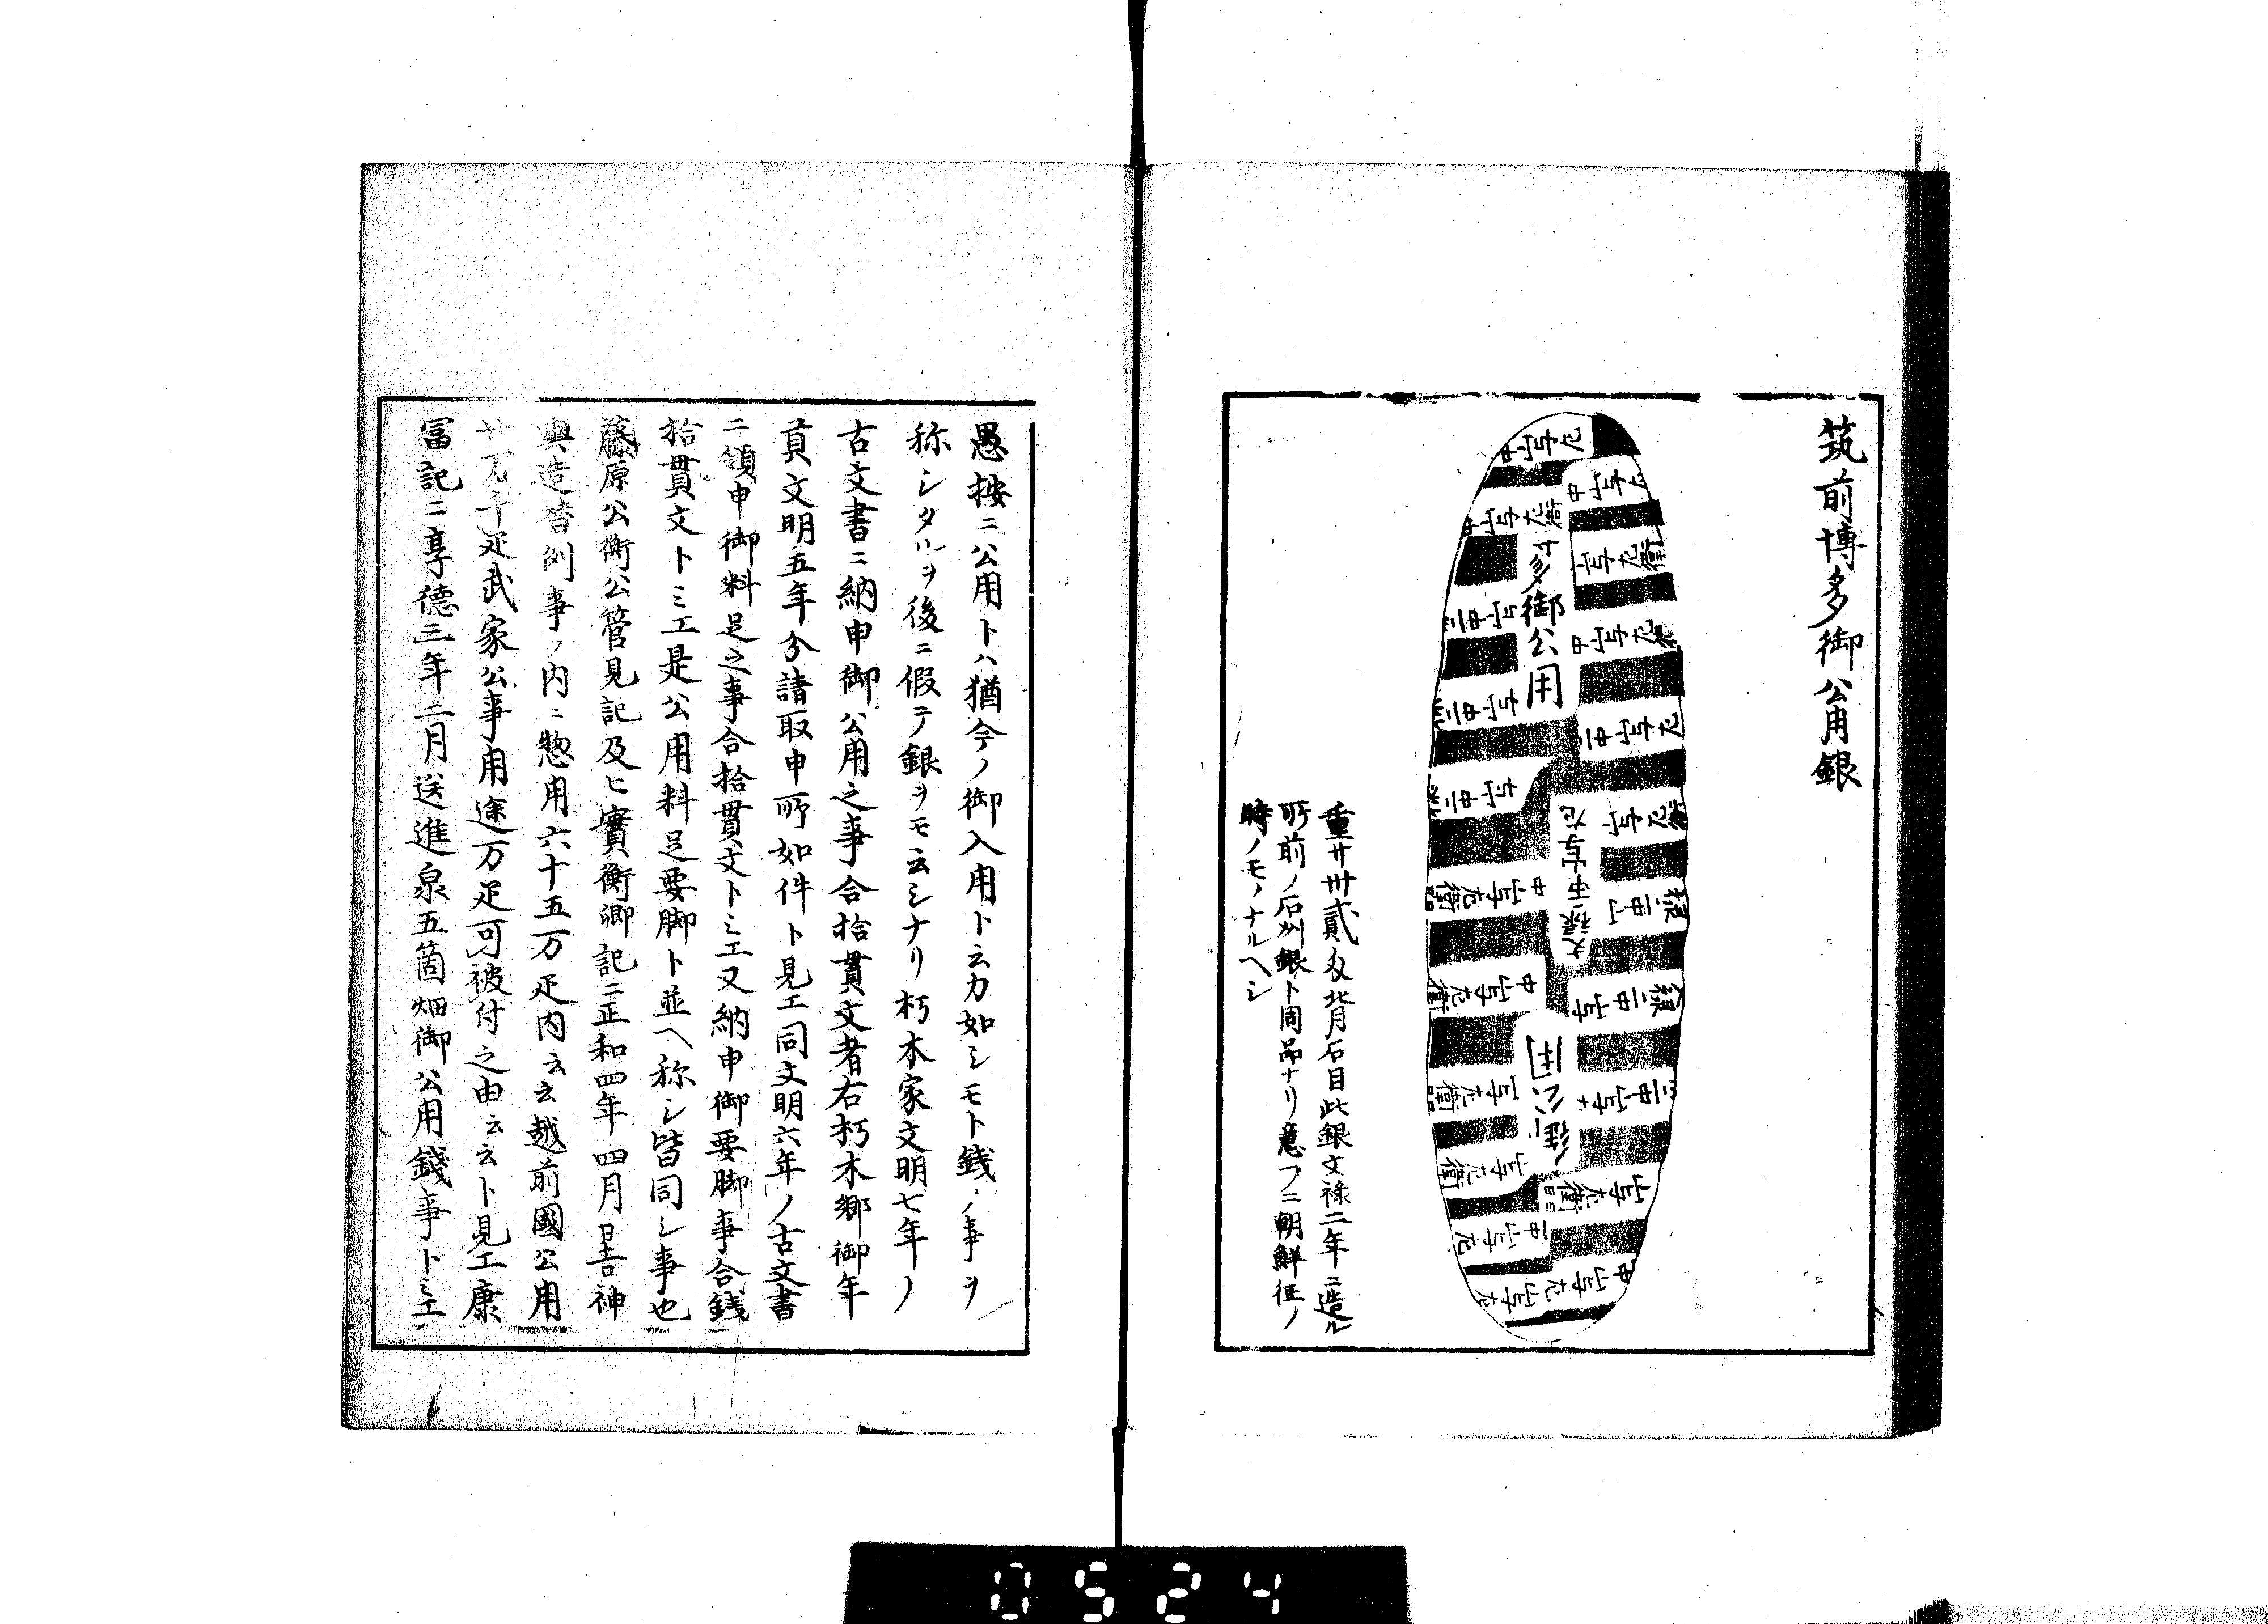 筑前博多御公用銀
御公用
文禄二中山与左
御公用
重サ卅貳匁背月石目此銀文禄二年ニ造ル
所前ノ石州銀ト同品ナリ意フニ朝鮮征ノ
時ノモノナルヘシ
愚按ニ公用トハ猶今ノ御入用ト云カ如シモト銭ノ事ヲ
称シタルヲ後ニ假テ銀ヲモ云シナリ朽木家文明七年ノ
古文書ニ納申御公用之事合拾貫文者右朽木郷御年
貢文明五年分請取申所如件ト見エ同文明六年ノ古文書
ニ領申御料足之事合拾貫文トミエ又納申御要脚事合銭
拾貫文トミエ是公用料足要脚ト並ヘ称シ皆同シ事也
藤原公衡公管見記及ヒ實衡卿記ニ正和四年四月神
輿造替例事ノ内ニ惣用六十五万疋内云云越前國公用
千疋武家公事用途万疋可被付之由云云ト見エ康
冨記ニ享德三年二月送進泉五箇畑御公用錢事トミエ
0524